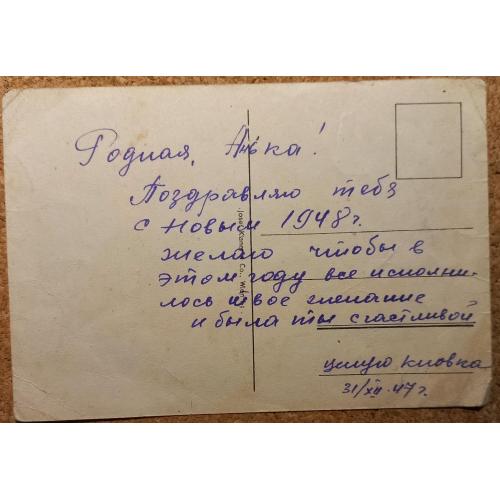 Родная, Анка!
Поздравляю тебя
с Новым 1948 г.
желаю чтобы в
этом году все исполни-
лось твое желание
и была ты счастливой
целую
31/XII-47 г.
Josef
Co., Wien